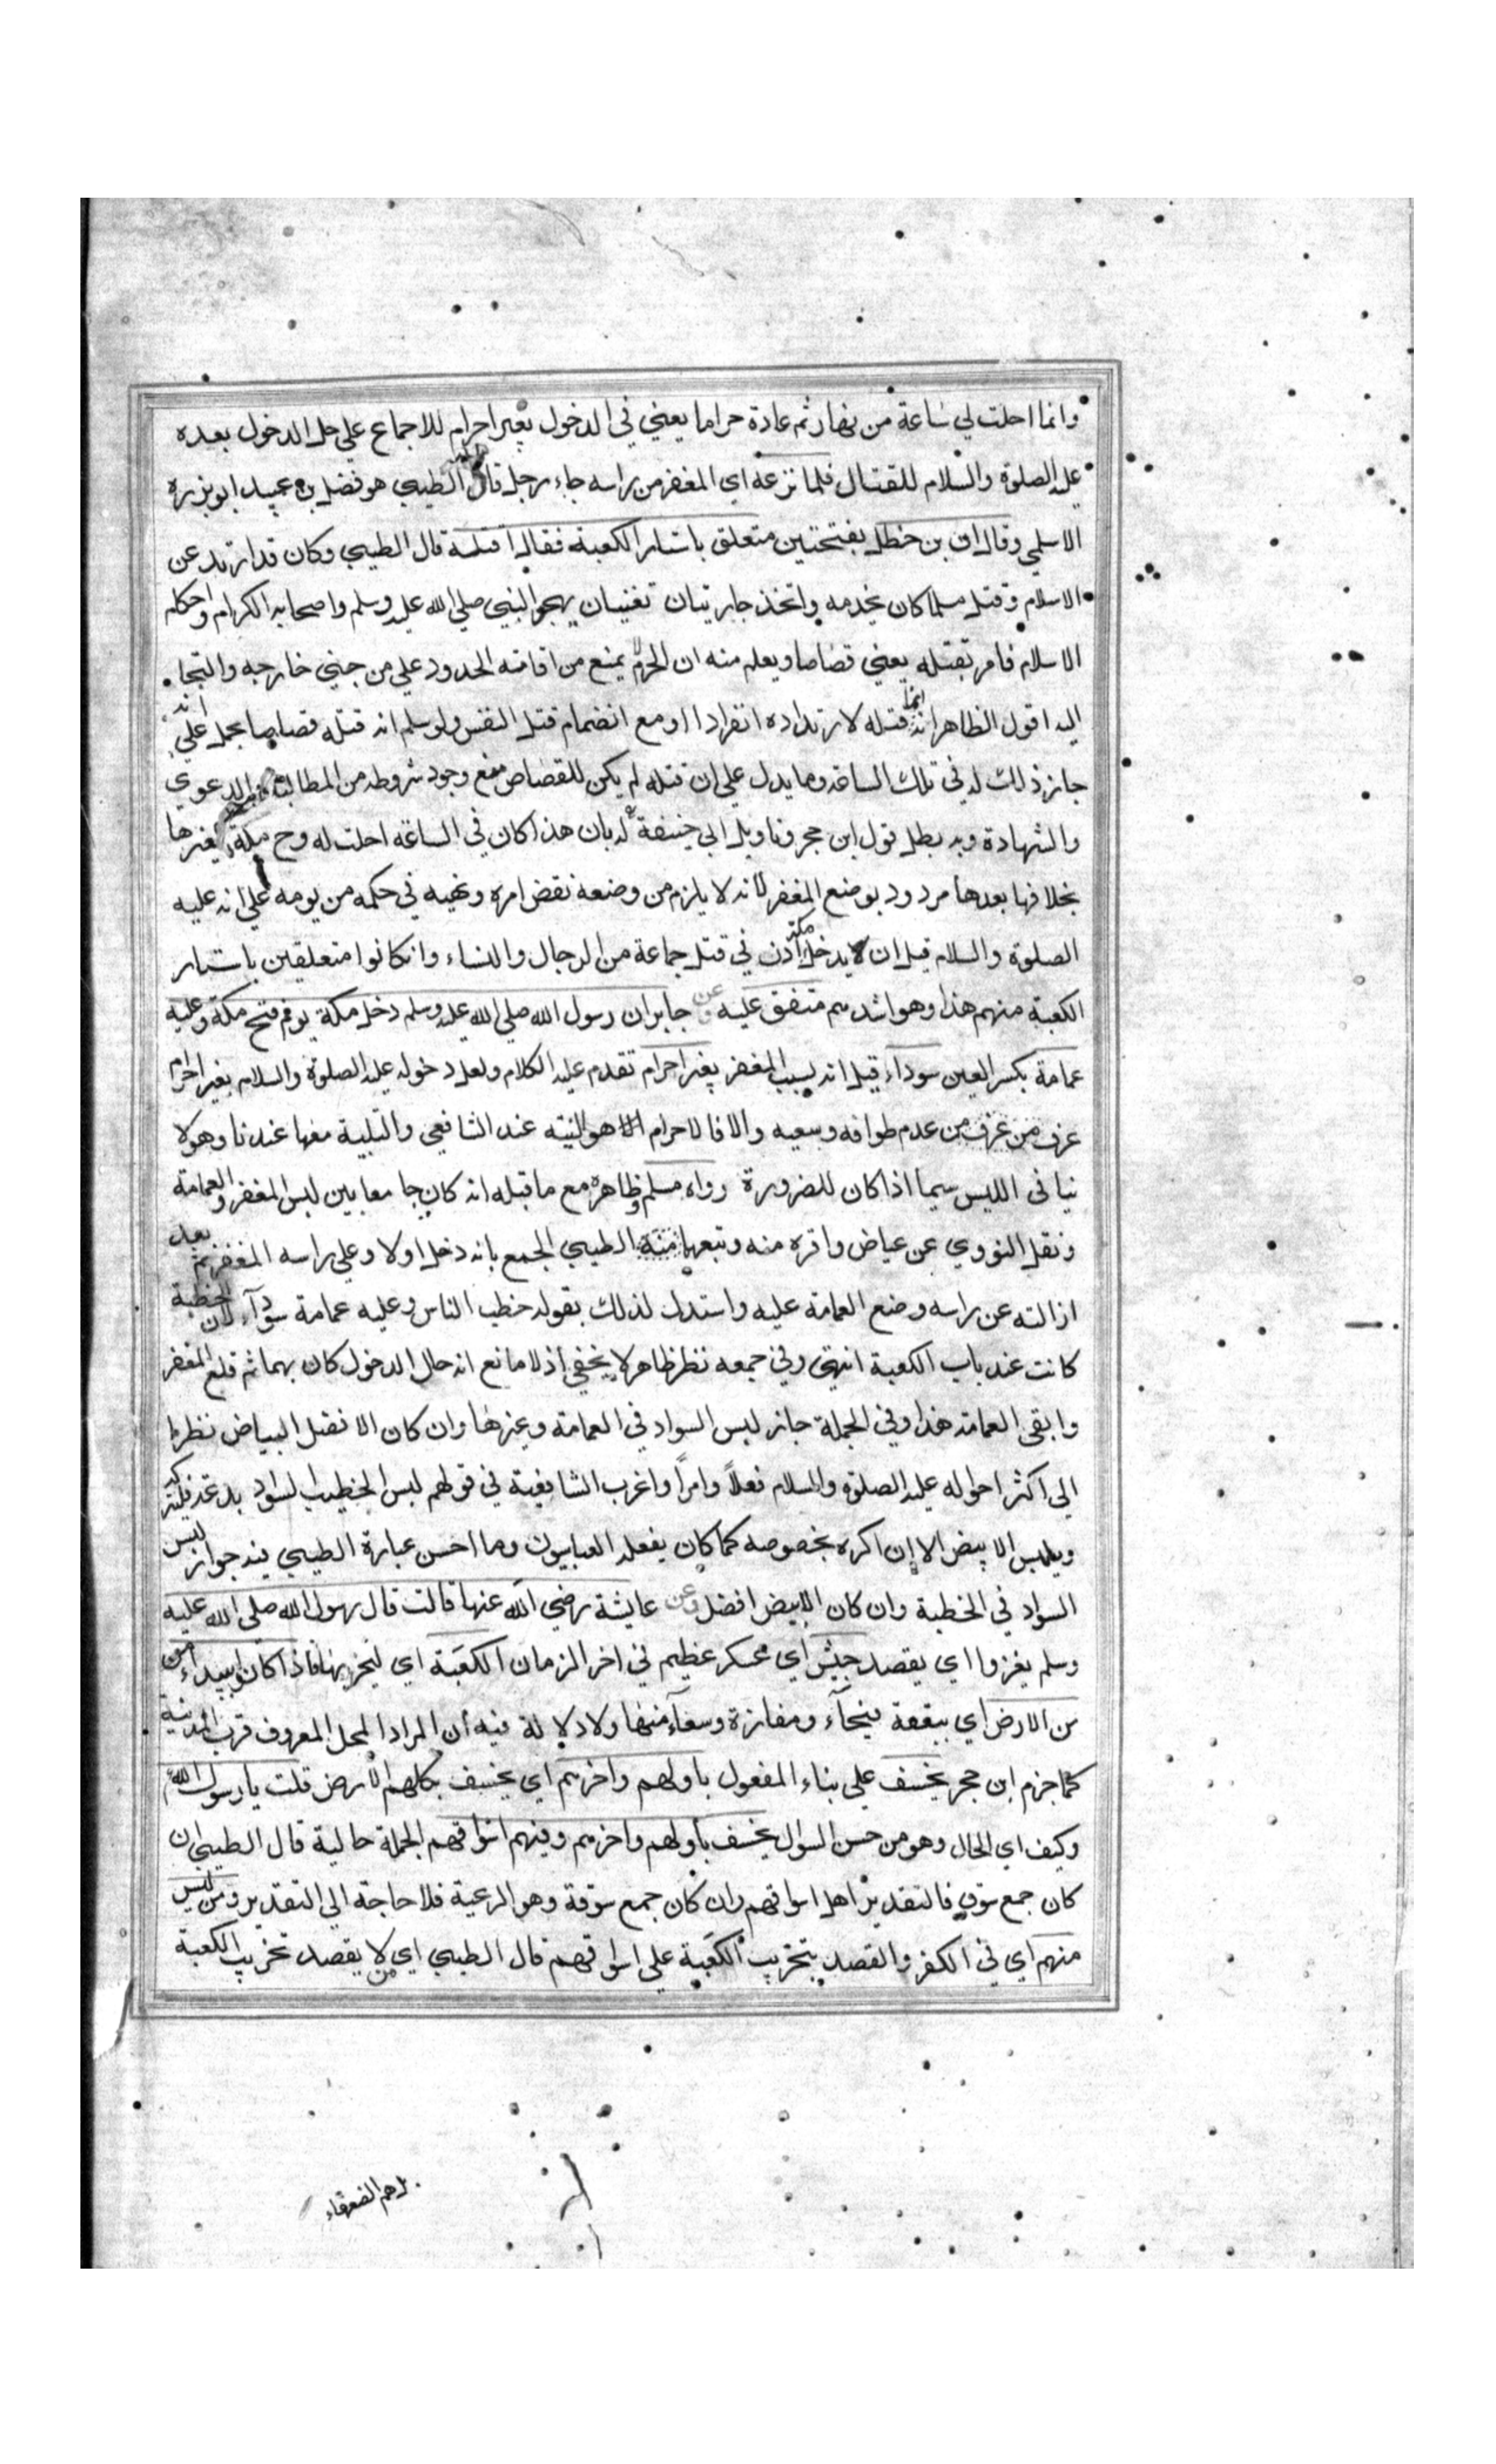 وانما احلت لي ساعة من نهار ثم عادة حراما يعني في الدخول بغير احرام للاجماع على حل الدخول بعده
عليه الصلوة والسلام للقتال فلما نزعه اي المغفر من راسه جاء رجل قال الطيبي هو فضل بن عبيد ابو بزرة
الاسلمي وقال ان بن خطل بفتحتين متعلق باستار الكعبة فقال اقتله قال الطيبي وكان قد ارتد عن
الاسلام وقتل مسلما كان يخدمه واتخذ جاريتان تغنيان بهجو النبي صلى الله عليه وسلم واصحابه الكرام واحكام
الاسلام فامر بقتله يعني قصاصا ويعلم منه ان الحرم لا يمنع من اقامة الحدود على من جنى خارجه والتجاء
اليه اقول الظاهر انه انما قتله لارتداده انفرادا او مع انضمام قتل النفس ولو سلم انه قتله قصاصا يحمل على انه
جاز ذلك له في تلك الساعة ومما يدل على ان قتله لم يكن للقصاص منع وجود شروطه من المطالبة والدعوى
والشهادة وبه بطل قول ابن حجر وتاويل ابي حنيفة له بان هذا كان في الساعة احلت له وح مكة كغيرها
بخلافها بعدها مردود بوضع المغفر لانه لا يلزم من وضعه نقض امره ونهيه في حكمه من يومه على انه عليه
الصلوة والسلام قبل ان يدخل مكة اذن في قتل جماعة من الرجال والنساء وان كانوا متعلقين باستار
الكعبة منهم هذا وهو اشدهم متفق عليه وعن جابر ان رسول الله صلى الله عليه وسلم دخل مكة يوم فتح مكة وعليه
عمامة بكسر العين سوداء قيل انه لبسب المغفر بغير احرام تقدم عليه الكلام ولعل دخوله عليه الصلوة والسلام بغير احرام
عرف من عرف من عدم طوافه وسعيه والا فالاحرام الا هو النية عند الشافعي والتلبية معها عندنا وهو لا
ينافى اللبس سيما اذا كان للضرورة رواه مسلم وظاهره مع ما قبله انه كان جامعا بين لبس المغفر والعمامة
ونقل النووي عن عياض واقره منه وتبعهما منه الطيبي الجمع بانه دخل اولا وعلى راسه المغفر ثم بعد
ازالته عن راسه وضع العمامة عليه واستدل لذلك بقوله خطب الناس وعليه عمامة سودآء لان الخطبة
كانت عند باب الكعبة انتهى وفي جمعه نظر ظاهر لا يخفي اذ لا مانع انه حال الدخول كان بهما ثم قلع المغفر
وابقى العمامة هذا وفي الجملة جاز لبس السواد في العمامة وغيرها وان كان الافضل البياض نظرا
الى اكثر احواله عليه الصلوة والسلام فعلاً وامراً واغرب الشافعية في قولهم لبس الخطيب السود بدعة فليترك
ويلبس الابيض الا ان اكره بخصوصه كما كان يفعله العباسيون وما احسن عبارة الطيبي فيه جواز لبس
السواد في الخطبة وان كان الابيض افضل وعن عايشة رضي الله عنها قالت قال رسول الله صلى الله عليه
وسلم يغزوا اي يقصد جيش اي عسكر عظيم في اخر الزمان الكعبة اي ليخربها فاذا كانوا ببيداء من
من الارض اي ببقعة فيحآء ومفازة وسعآء منها ولا دلالة فيه ان المراد المحل المعروف قرب المدينة
كما جزم ابن حجر يخسف على بناء المفعول باولهم واخرهم اي يخسف بكلهم الارض قلت يا رسول الله
وكيف اي الحال وهو من حسن السوال يخسف باولهم واخرهم وفيهم اسواقهم الجملة حالية قال الطيبي ان
كان جمع سوق فالتقدير اهل اسواقهم وان كان جمع سوقة وهو الرعية فلا حاجة الى التقدير ومن ليس
منهم اي في الكفر والقصد بتخريب الكعبة على اسواقهم قال الطيبي اي من لا يقصد تخريب الكعبة